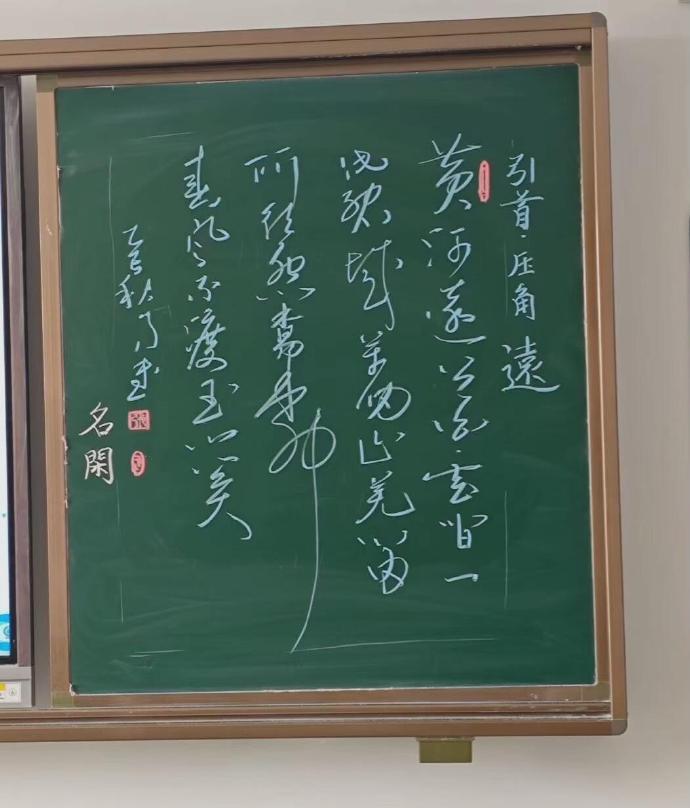 引首·压角 遠
黄河遠上白云间一
片孤城萬仞山羌笛
何須怨楊柳
春風不度玉门关
乙巳秋月書
名閑